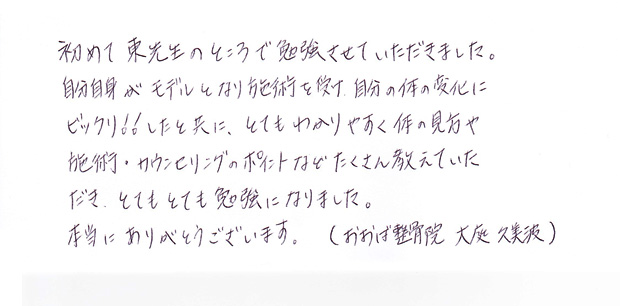 初めて東先生のところで勉強させていただきました。
自分自身がモデルとなり施術を受け、自分の体の変化に
ビックリ!!したと共に、とてもわかりやすく体の見方や
施術・カウンセリングのポイントなどたくさん教えていた
だき、とてもとても勉強になりました。
本当にありがとうございます。 (おおば整骨院 大庭 久美波)